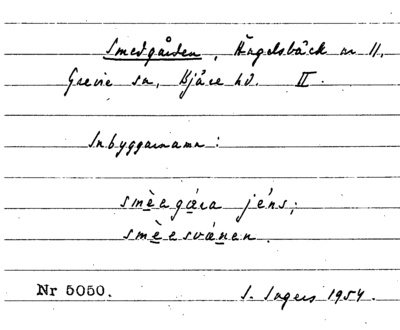 Smedgården, Ängelsbäck nr 11.
Grevie sn, Bjäre hd. II.
Inbyggarnamn:
smèegára jéns;
smèesvánen.
Nr 5050. I. Ingers 1954.